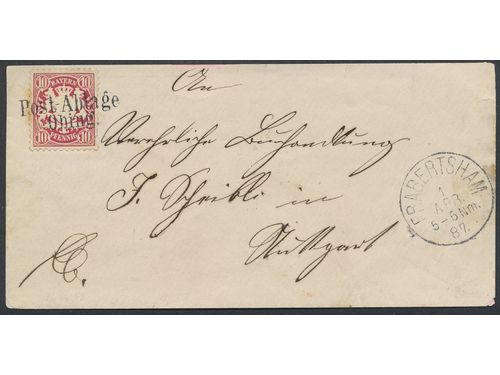 BAYERN
10 10
10 PFENNIG 10
Post-Ablage
Obing.
An
Verehrliche Buchandlung
J. Scheible in
Stuttgart
FRABERTSHAM
1
APR.
5-6 Nm.
87.